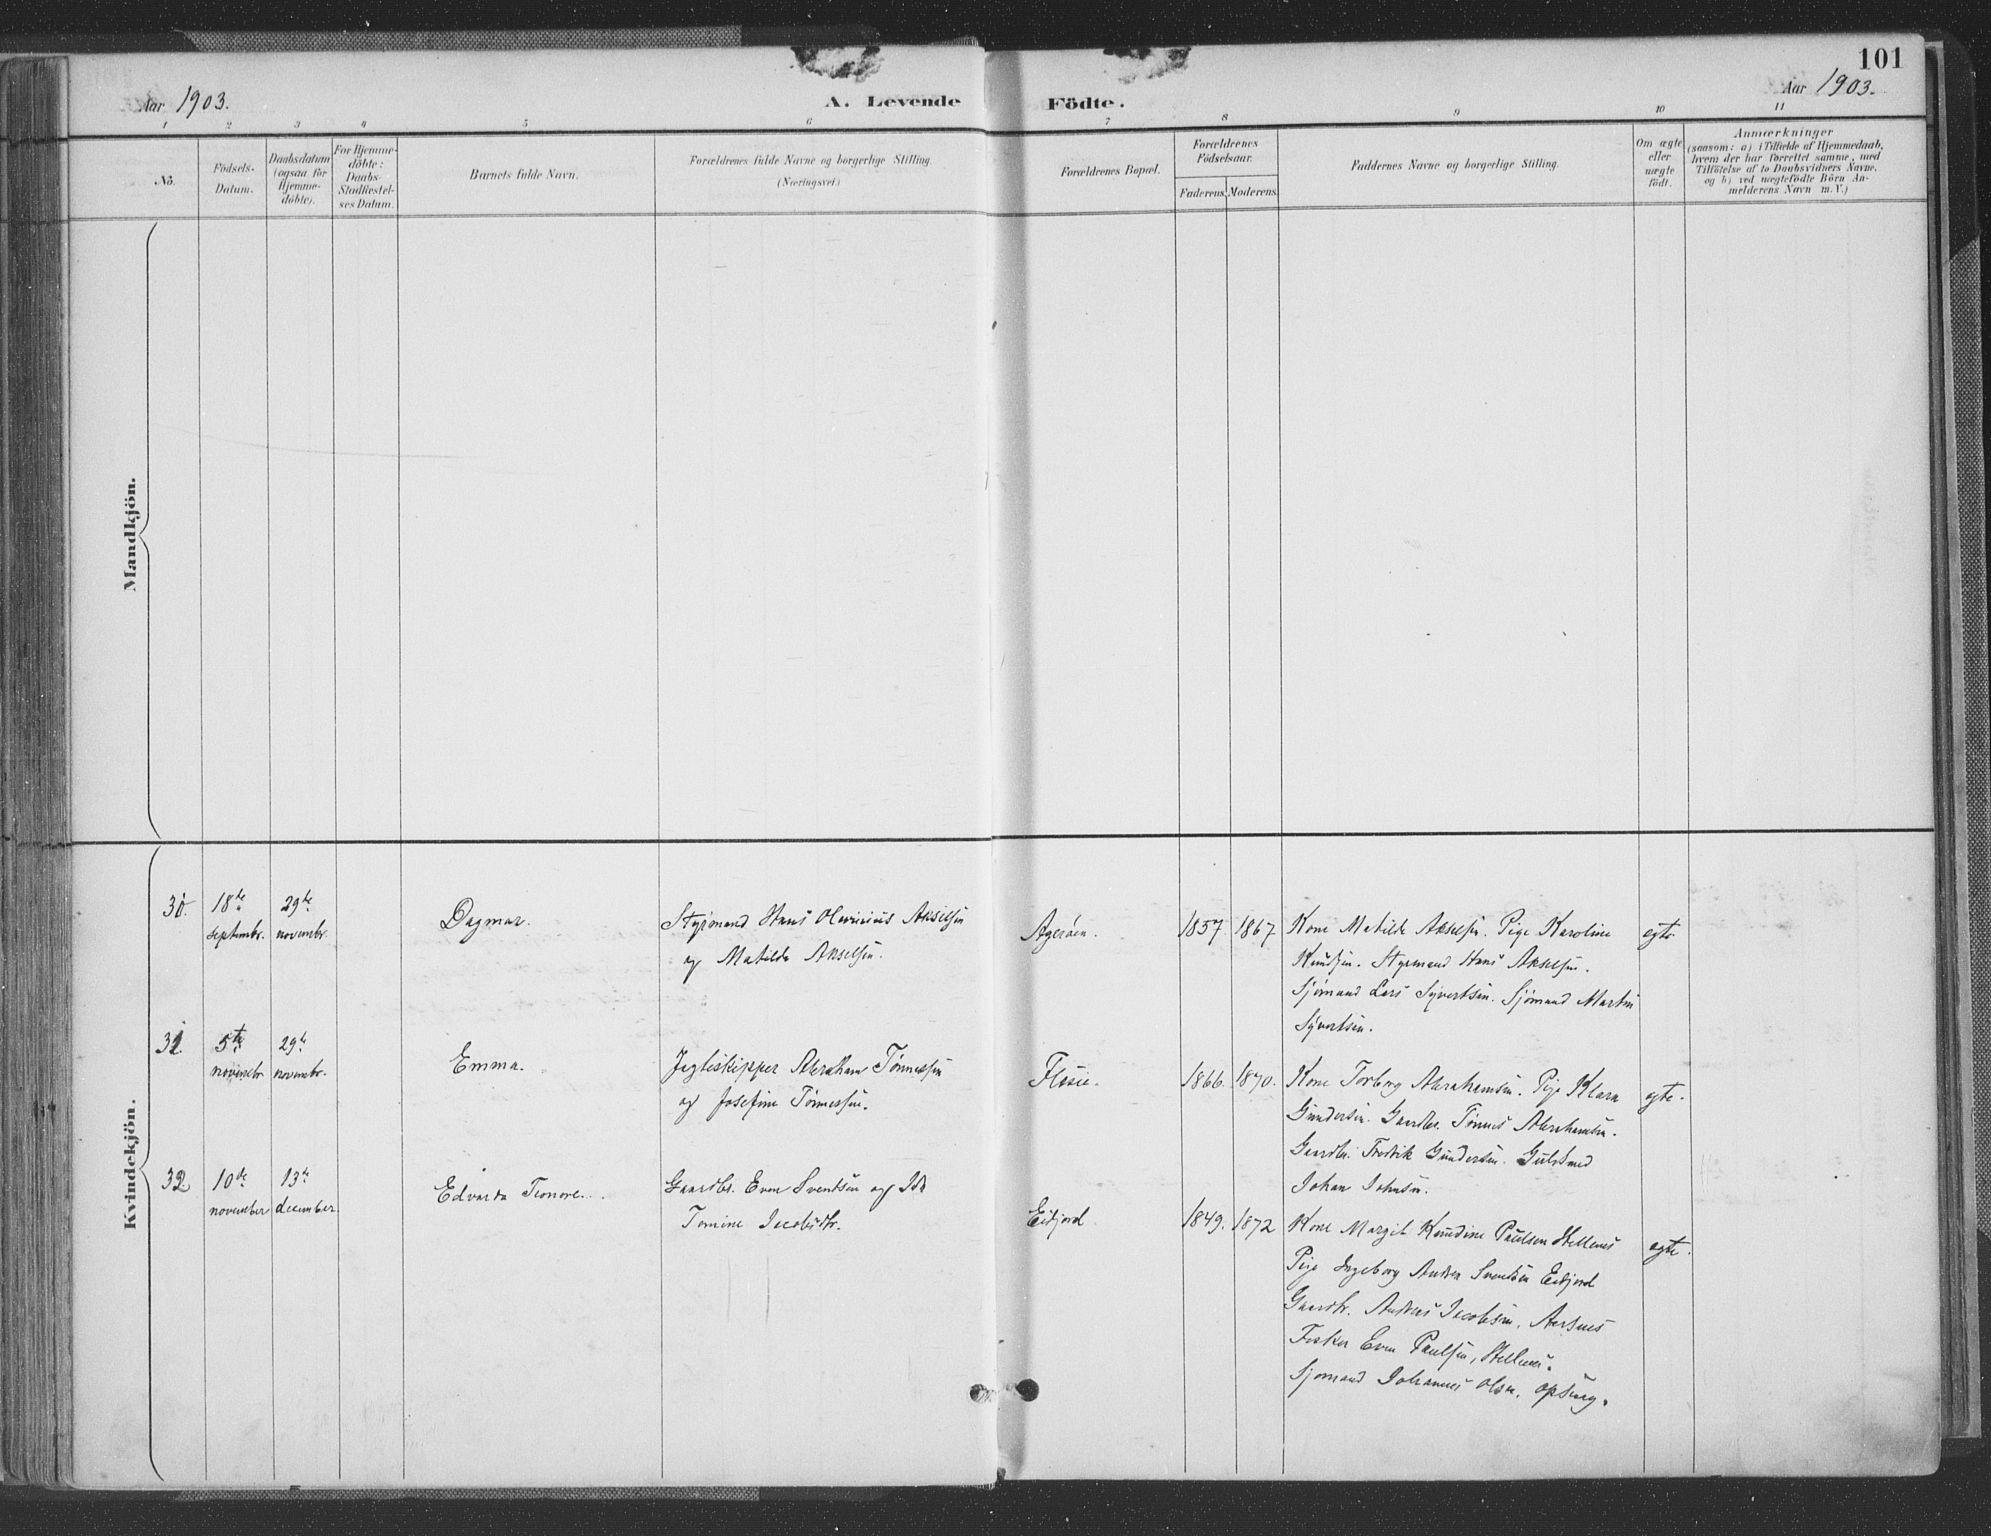 101
Aar 1903.
A. Levende Födte.
Aar 1903.
1 2 3 4 5 6 7 8 9 10 11
No.
Födsels-
Datum.
Daabsdatum
(ogsaa for
Hjemme-
döbte).
For Hjemme-
döbte:
Daabs-
Stadfæstel-
ses Datum.
Barnets fulde Navn.
Forældrenes fulde Navne og borgerlige Stilling.
(Næringsvei.)
Forældrenes Bopæl.
Forældrenes
Födselsaar.
Faderens. Moderens.
Faddernes Navne og borgerlige Stilling.
Om ægte
eller
uægte
födt.
Anmærkninger
(saasom: a) i Tilfælde af Hjemmedaab,
hvem der har forrettet samme, med
Tilföielse af to Daabsvidners Navne,
og b) ved uægtefödte Börn An-
melderens Navn m. V.)
Mandkjön.
Kvindekjön.
30.
18de
septembr.
29de
novembr.
Dagmar.
Styrmand Hans Olivinius Akselsen
og Matilde Akselsen.
Agerøen.
1857
1867
Kone Matilde Akselsen. Pige Karoline
Knudsen. Styrmand Hans Akselsen.
Sjømand Lars Syvertsen. Sjømand Martin
Syvertsen.
egte
31.
5te
novembr.
29de
novembr.
Emma.
Jagteskipper Abraham Tønnessen
og Josefine Tønnessen.
1866.
1870.
Kone Torborg Abrahamsen. Pige Klara
Gundersen. Gaardbr. Tønnes Abrahamsen.
Gaardbr. Fredrik Gundersen. Guldsmed
Johan Johnsen.
egte.
32.
10de
november
13de
december.
Edvarda
Gaardbr. Even Svendsen og Ida
Tomine Jacobsdtr.
Eidjord
1849.
1872
Kone Margit Knudine Paulsen Stellenes
Pige Ingeborg Andrea Svendsen Eidjord
Gaardbr. Andreas Jacobsen,
Fisker Even Paulsen, Stellenes.
Sjømand Johannes Olsen,
egte.